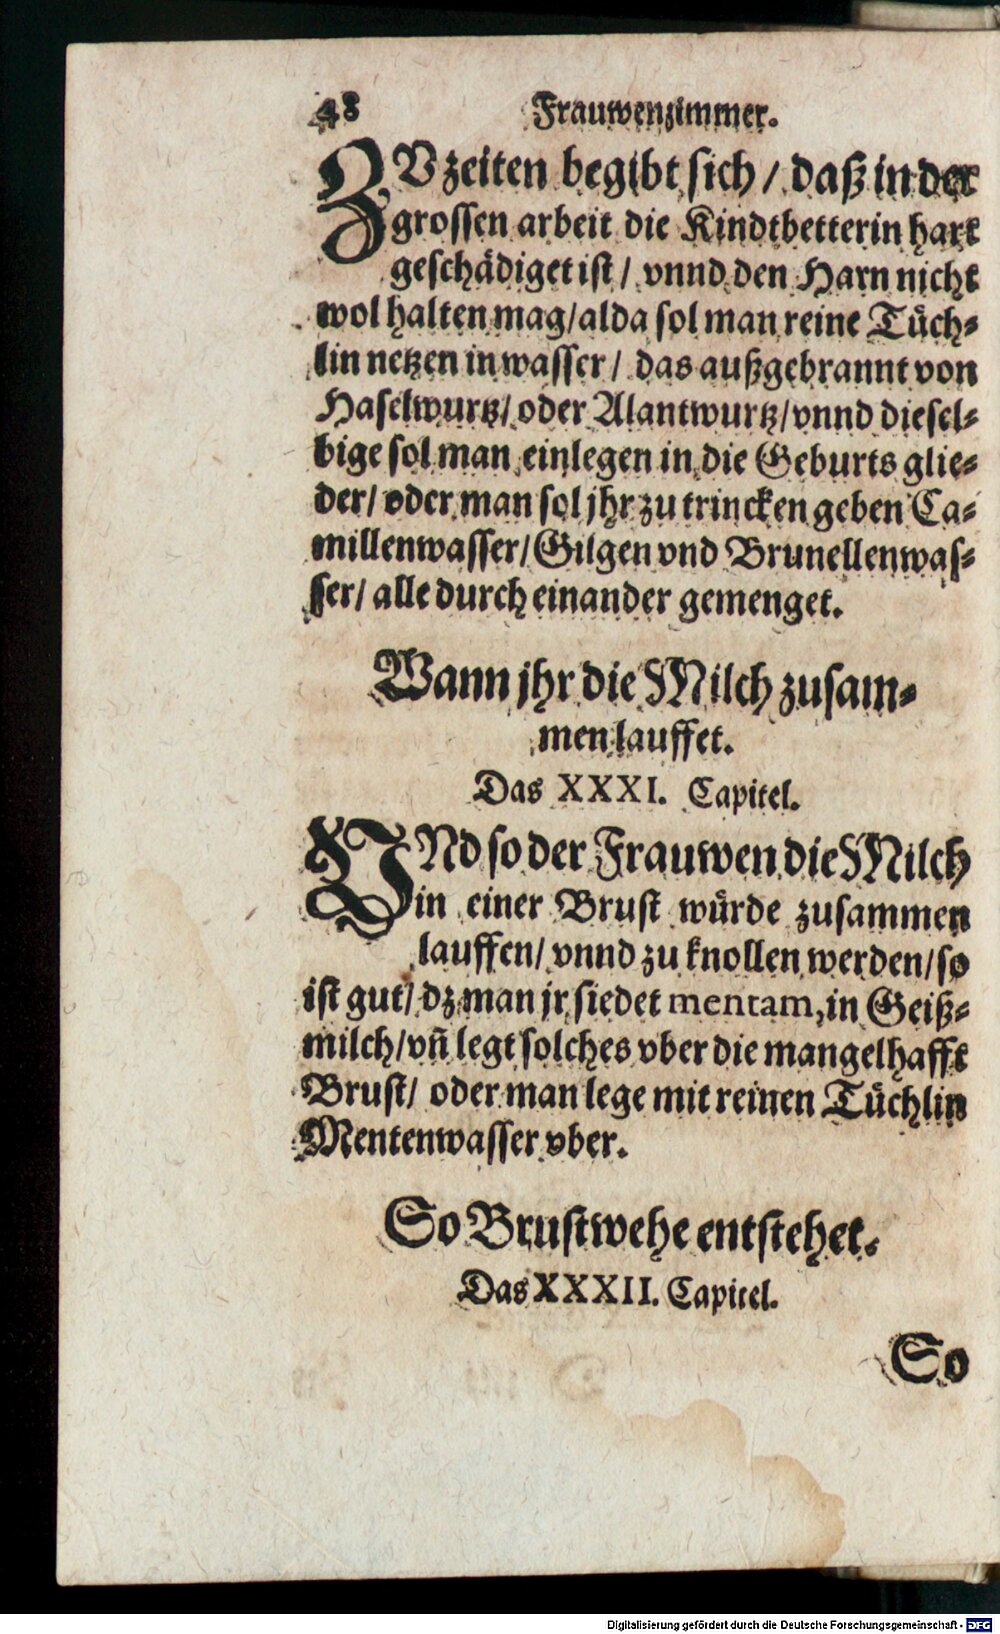 48 Frauwenzimmer.
ZVzeiten begibt sich / daß in der
grossen arbeit die Kindtbetterin hart
geschädiget ist / vnnd den Harn nicht
wol halten mag / alda sol man reine Tüch⸗
lin netzen in wasser / das außgebrannt von
Haselwurtz / oder Alantwurtz / vnnd diesel⸗
bige sol man einlegen in die Geburts glie⸗
der / oder man sol jhr zu trincken geben Ca⸗
millenwasser / Gilgen vnd Brunellenwas⸗
ser / alle durch einander gemenget.
Wann jhr die Milch zusam⸗
men lauffet.
Das XXXI. Capitel.
VNd so der Frauwen die Milch
in einer Brust würde zusammen
lauffen / vnnd zu knollen werden / so
ist gut / dz man jr siedet mentam, in Geiß⸗
milch / vñ legt solches vber die mangelhafft
Brust / oder man lege mit reinen Tüchlin
Mentenwasser vber.
So Brustwehe entstehet.
Das XXXII. Capitel.
So
Digitalisierung gefördert durch die Deutsche Forschungsgemeinschaft - DFG